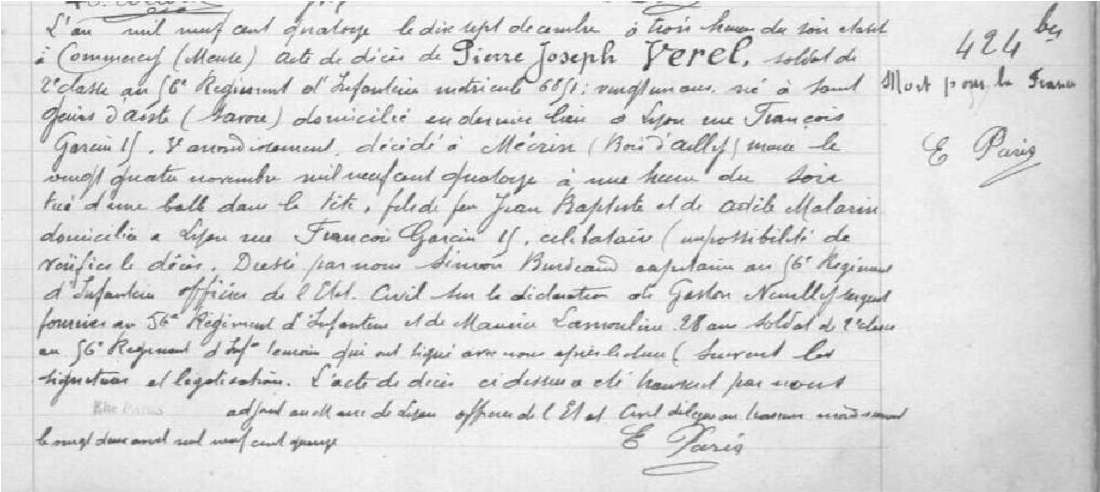 L'an mil neuf cent quatorze le dix sept decembre à trois heures du soir étant
à Commercy (Meuse) acte de décès de Pierre Joseph Verel, soldat de
2e classe au 56e Regiment d'Infanterie matricule 6851; vingt un ans, né à Saint
Genis d'aoste (Savoie) domicilié en dernier lieu à Lyon rue François
Garcin 15, V arrondissement, décédé à Mécrin (Bois d'ailly) meuse le
vingt quatre novembre mil neuf cent quatorze à une heure du soir
tué d'une balle dans la tête, fils de feu Jean Baptiste et de Adèle Malarin
domiciliée a Lyon rue François Garcin 15, celibataire (impossibilité de
vérifier le décès. Dressé par nous Simon Burdeaud capitaine au 56e Regiment
d'Infanterie officier de l'Etat Civil sur la déclaration de Gaston Neuilly sergent
fourrier au 56e Régiment d'Infanterie et de Maurice Lamouline 28 ans soldat de 2e classe
au 56e Regiment d'Infie temoin qui ont signé avec nous après lecture (Suivent les
signatures et légalisation. L'acte de décès ci dessus a été transcrit par nous
adjoint au Maire de Lyon officier de l'Etat Civil délégué au
le vingt deux avril mil neuf cent quinze
E Paris
424 bis
Mort pour la France
E Paris